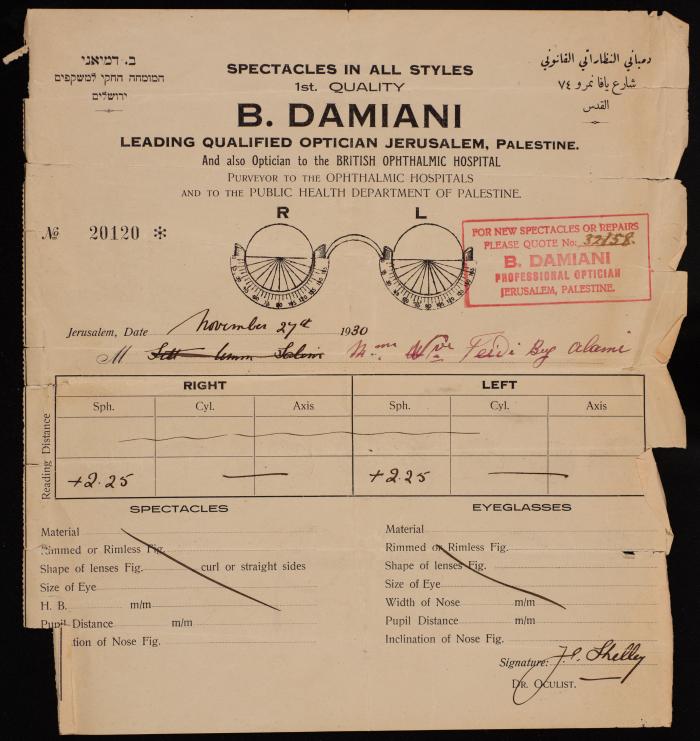 ב. דמיאני
המומחה החקי למשקפים
ירושלים
SPECTACLES IN ALL STYLES
1st. QUALITY
B. DAMIANI
LEADING QUALIFIED OPTICIAN JERUSALEM, PALESTINE.
And also Optician to the BRITISH OPHTHALMIC HOSPITAL
PURVEYOR TO THE OPHTHALMIC HOSPITALS
AND TO THE PUBLIC HEALTH DEPARTMENT OF PALESTINE.
دمياني النظاراتي القانوني
شارع يافا نمرو ٧٤
القدس
№ 20120 *
R L
FOR NEW SPECTACLES OR REPAIRS
PLEASE QUOTE No: 32158.
B. DAMIANI
PROFESSIONAL OPTICIAN
JERUSALEM, PALESTINE.
Jerusalem, Date November 27th 1930
M Sett Umm Salim Mme Wve Feidi Bey Alami
RIGHT LEFT
Sph. Cyl. Axis Sph. Cyl. Axis
Reading Distance
+2.25 — +2.25 —
SPECTACLES
Material
Rimmed or Rimless Fig.
Shape of lenses Fig. curl or straight sides
Size of Eye
H. B. m/m
Pupil Distance m/m
tion of Nose Fig.
EYEGLASSES
Material
Rimmed or Rimless Fig.
Shape of lenses Fig.
Size of Eye
Width of Nose m/m
Pupil Distance m/m
Inclination of Nose Fig.
Signature: J.P. Shelley
DR. OCULIST.